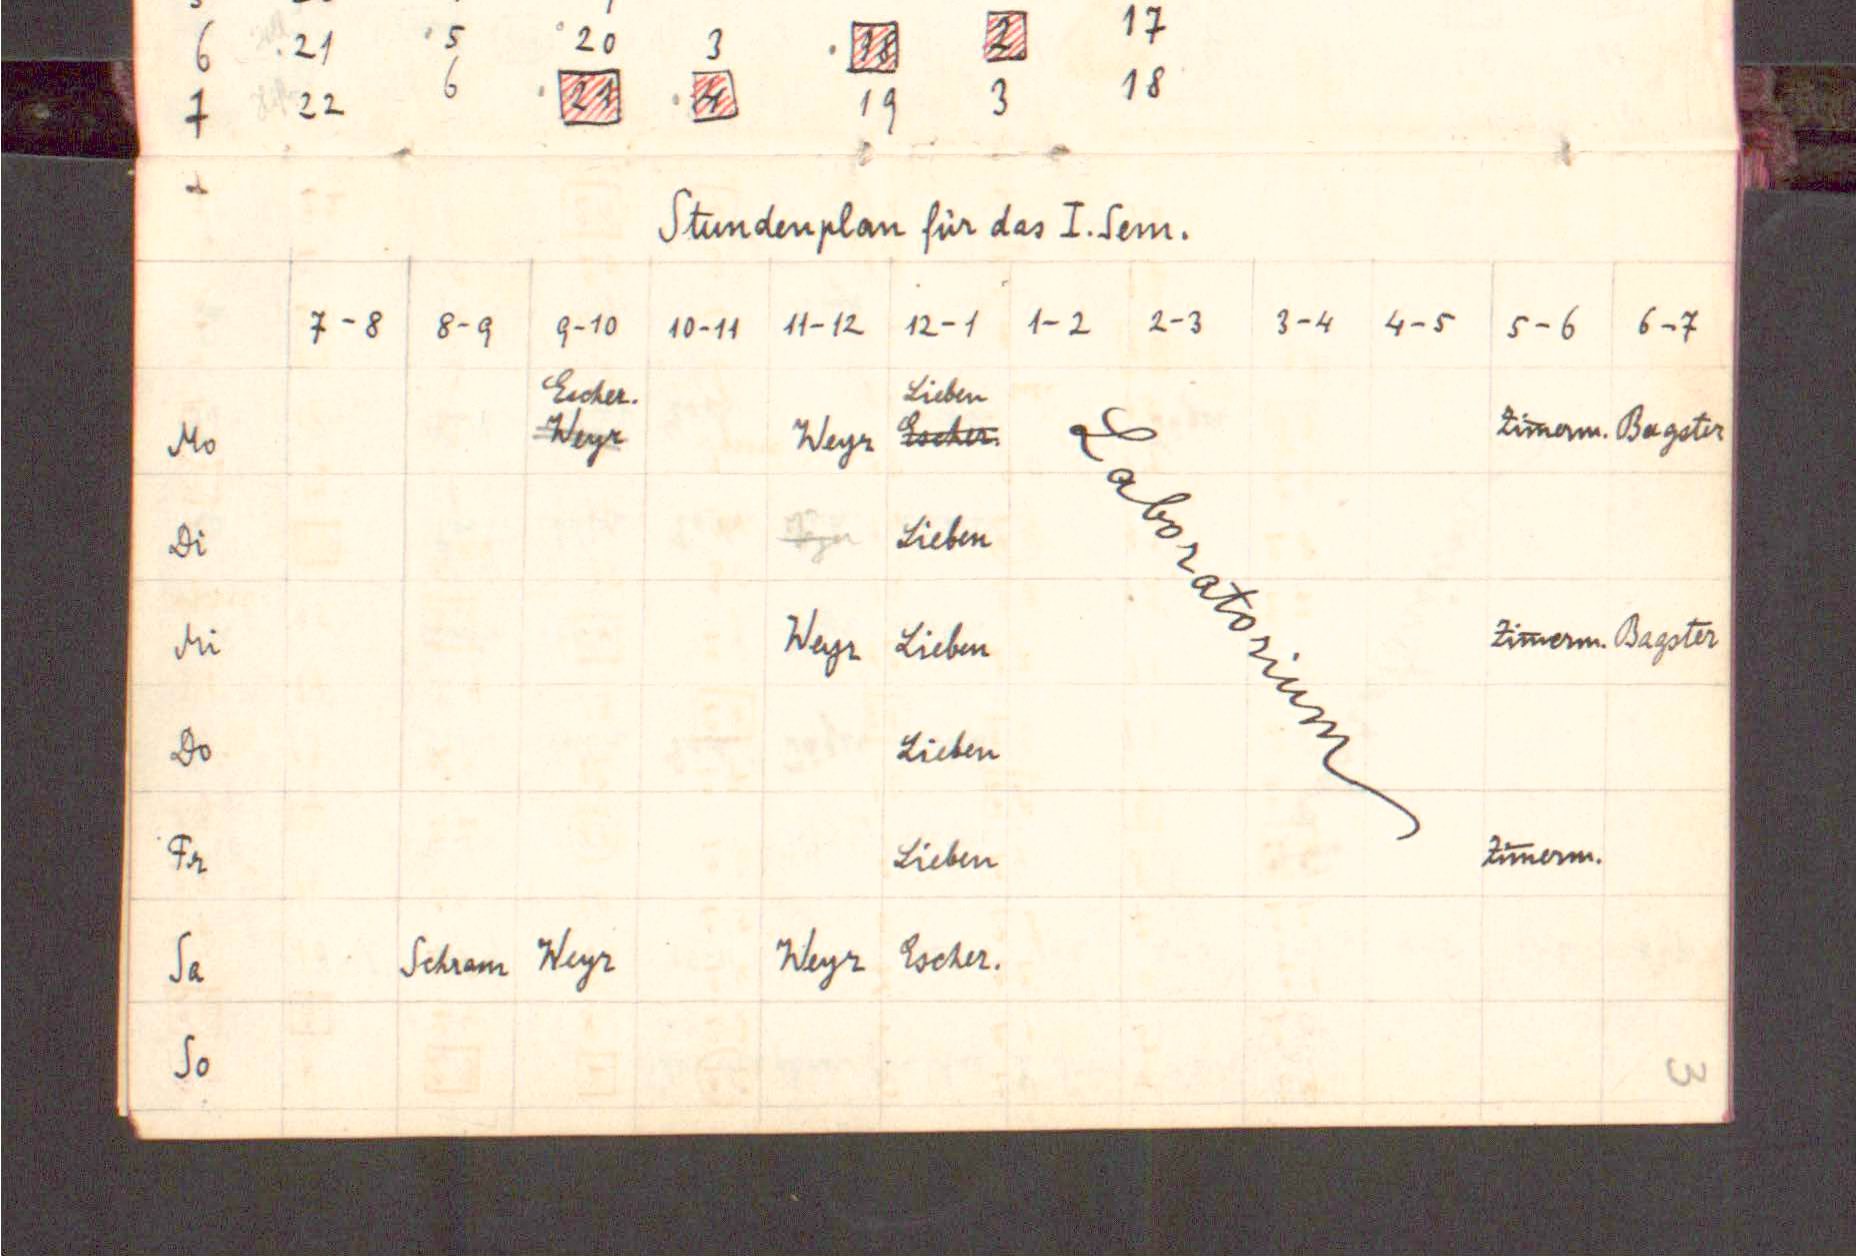 6 21 5 20 3 18 2 17
7 22 6 21 4 19 3 18
Stundenplan für das I. Sem.
7-8 8-9 9-10 10-11 11-12 12-1 1-2 2-3 3-4 4-5 5-6 6-7
Escher. Lieben
Mo Weyr Weyr Escher. Zim̅erm. Bagster
Laboratorium
Di Lieben
Mi Weyr Lieben Zim̅erm. Bagster
Do Lieben
Fr Lieben Zim̅erm.
Sa Schram Weyr Weyr Escher.
So
3